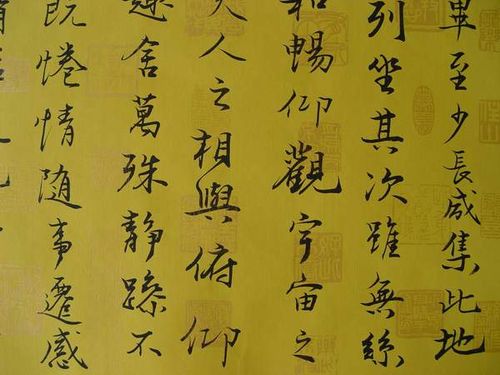 畢至少長咸集此地
列坐其次雖無絲
和暢仰觀宇宙之
夫人之相與俯仰
舍萬殊靜躁不
既惓情随事遷感